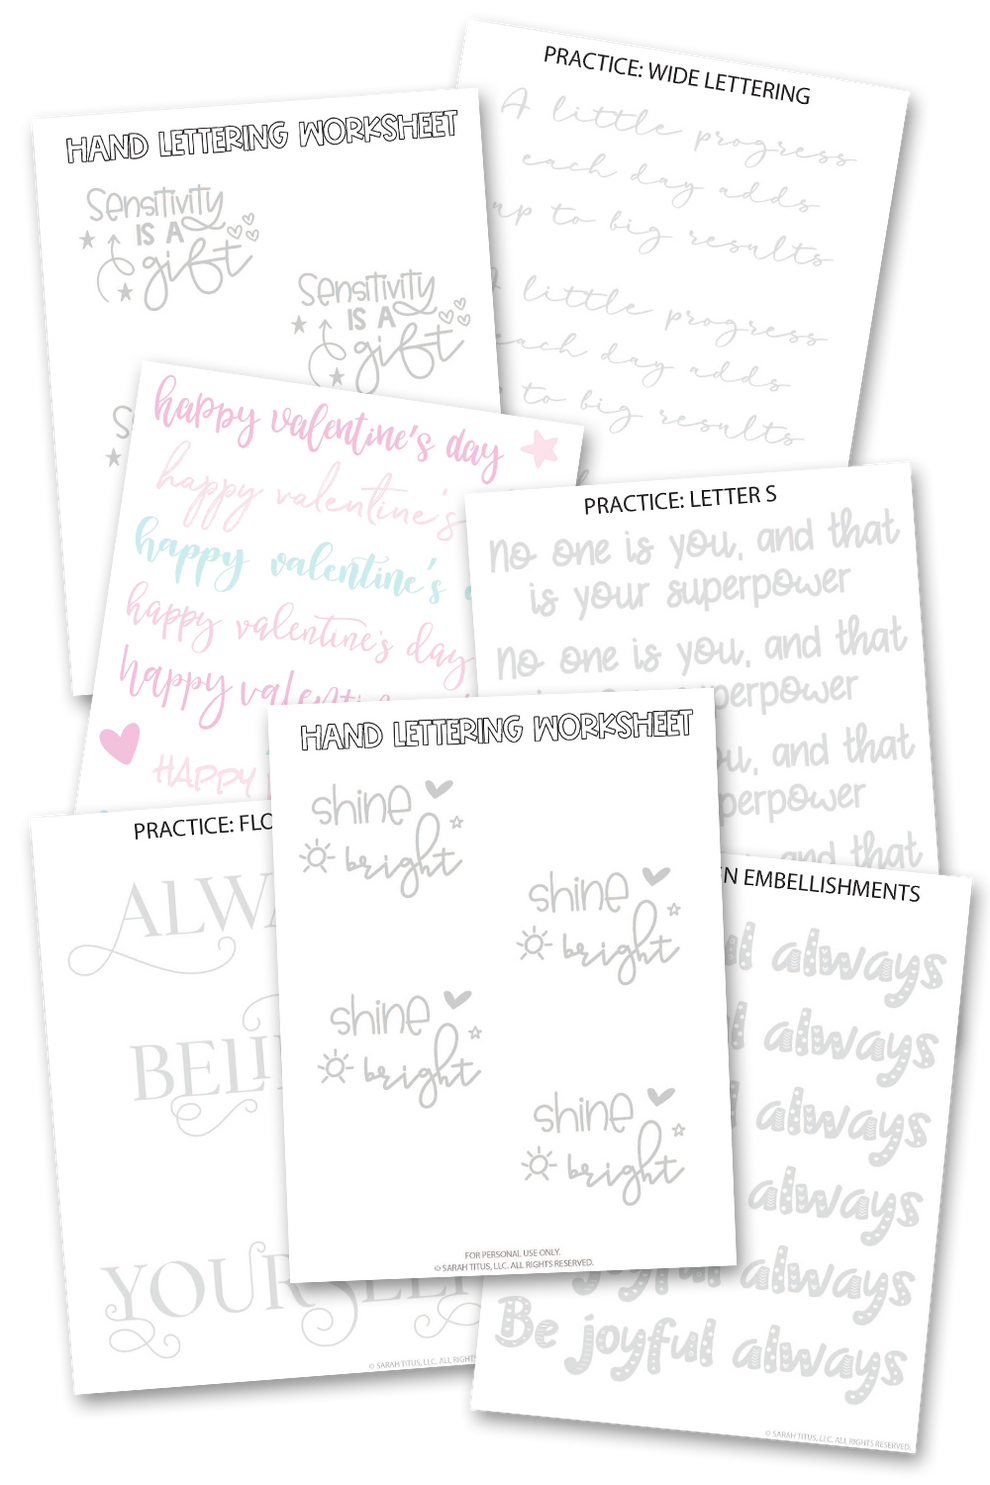 HAND LETTERING WORKSHEET
Sensitivity
IS A
gift
Sensitivity
IS A
gift
PRACTICE: WIDE LETTERING
A little progress
each day adds
up to big results
little progress
each day adds
to big results
happy valentine's day
happy valentine's
happy valentine's
happy valentine's day
happy
HAPPY
PRACTICE: LETTER S
no one is you, and that
is your superpower
no one is you, and that
superpower
you, and that
superpower
and that
PRACTICE: FLO
ALWA
BELI
YOURSELF
© SARAH TITUS, LLC. ALL RIGHTS
HAND LETTERING WORKSHEET
shine
bright
shine
bright
shine
bright
shine
bright
FOR PERSONAL USE ONLY.
© SARAH TITUS, LLC. ALL RIGHTS RESERVED.
EMBELLISHMENTS
always
always
always
always
joyful always
Be joyful always
© SARAH TITUS, LLC. ALL RIGHTS RESERVED.